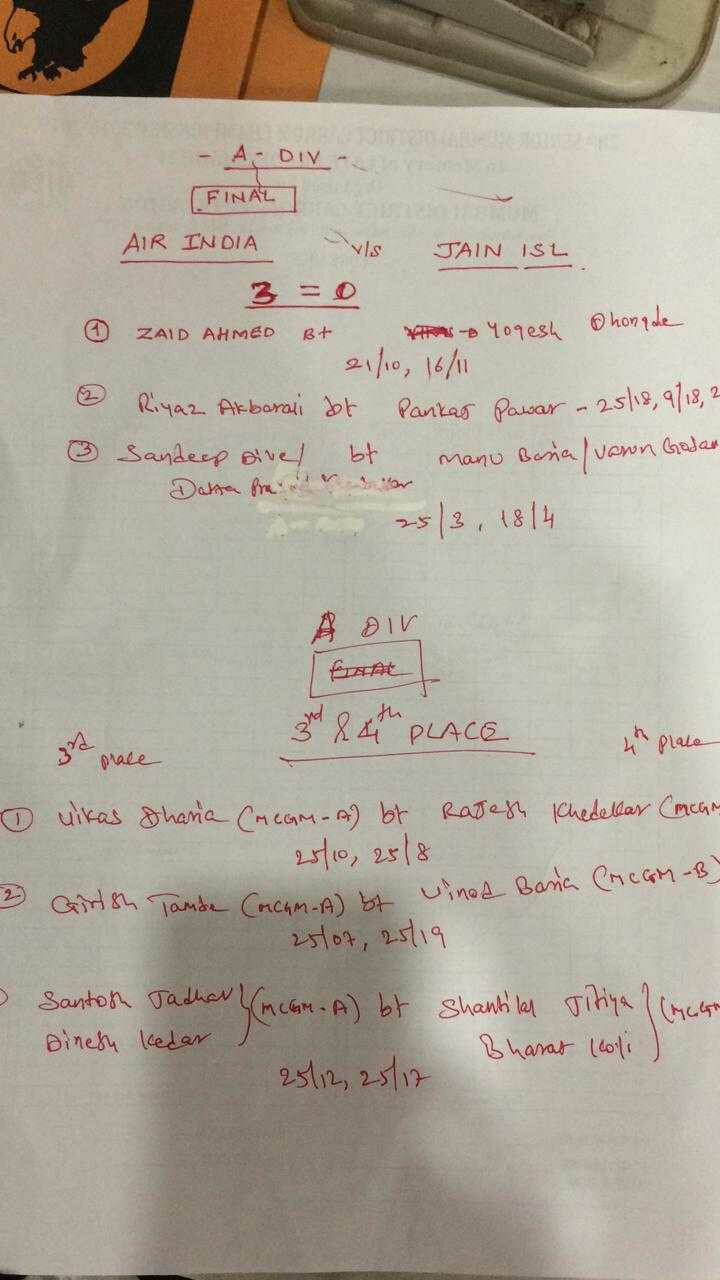 - A - DIV -
FINAL
AIR INDIA v/s JAIN ISL.
3 = 0
① ZAID AHMED Bt Yogesh Dhongde
21/10, 16/11
② Riyaz Akbarali bt Pankaj Pawar - 25/18, 9/18, 2
③ Sandeep Dive / bt Manu Baria / Varun
Datta
25/3, 18/4
A DIV
FINAL
3rd & 4th PLACE
3rd place 4th place
① Vikas Dharia (MCGM-A) bt Rajesh Khedekar (MCGM
25/10, 25/8
2 Girish Tambe (MCGM-A) bt Vinod Baria (MCGM-B)
25/07, 25/19
Santosh Jadhav } (MCGM-A) bt Shantilal Jitiya } (MCGM
Dinesh Kedar Bharat Koli
25/12, 25/17